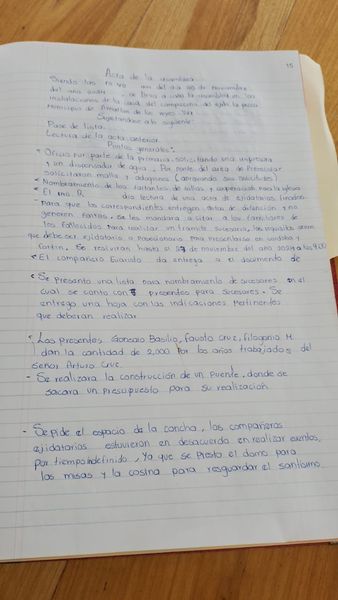 15
Acta de la asamblea
Siendo las 10:40 am del dia 20 de noviembre
del año
se lleva a cabo la asamblea en las
instalaciones de la casa del campesino del ejido la
Municipio de Amatlan de los reyes Ver
Sujetandose a lo siguiente:
Pase de lista.
Lectura de la acta anterior.
Puntos generales:
Oficio por parte de la primaria solicitando una impresora
y un dispensador de agua. Por parte del area de Preescolar
solicitaron malla y adoquines (
Nombramiento de los faltantes de sillas y cooperacion para la iglesia
El
dio lectura de una acta de ejidatarios finados
- para que los correspondientes entreguen actas de defunción y no
generen faltas. se les mandara a citar a los familiares de
los fallecidos para realizar un tramite sucesorio, los requisitos seran
que debe ser ejidatario o posesionario para presentarse en
Se realizaran hasta el de noviembre del año 2024 a las 9:00
El compañero Eduardo da entrega a el documento de
- Se presento una lista para nombramiento de sucesores en el
cual se conto con 5 presentes para sucesores. Se
entrego una hoja con las indicaciones pertinentes
que deberan realizar
Los presentes Gonzalo Basilio, fausto Cruz, filogonio M.
dan la cantidad de 2,000 por los años trabajados del
Señor Arturo Cruz.
- Se realizara la construcción de un puente, donde se
sacara un presupuesto para su realización
- Se pide el espacio de la concha, los compañeros
ejidatarios estuvieron en desacuerdo en realizar eventos,
por tiempo indefinido, ya que se presto el domo para
las misas y la cosina para resguardar el santisimo